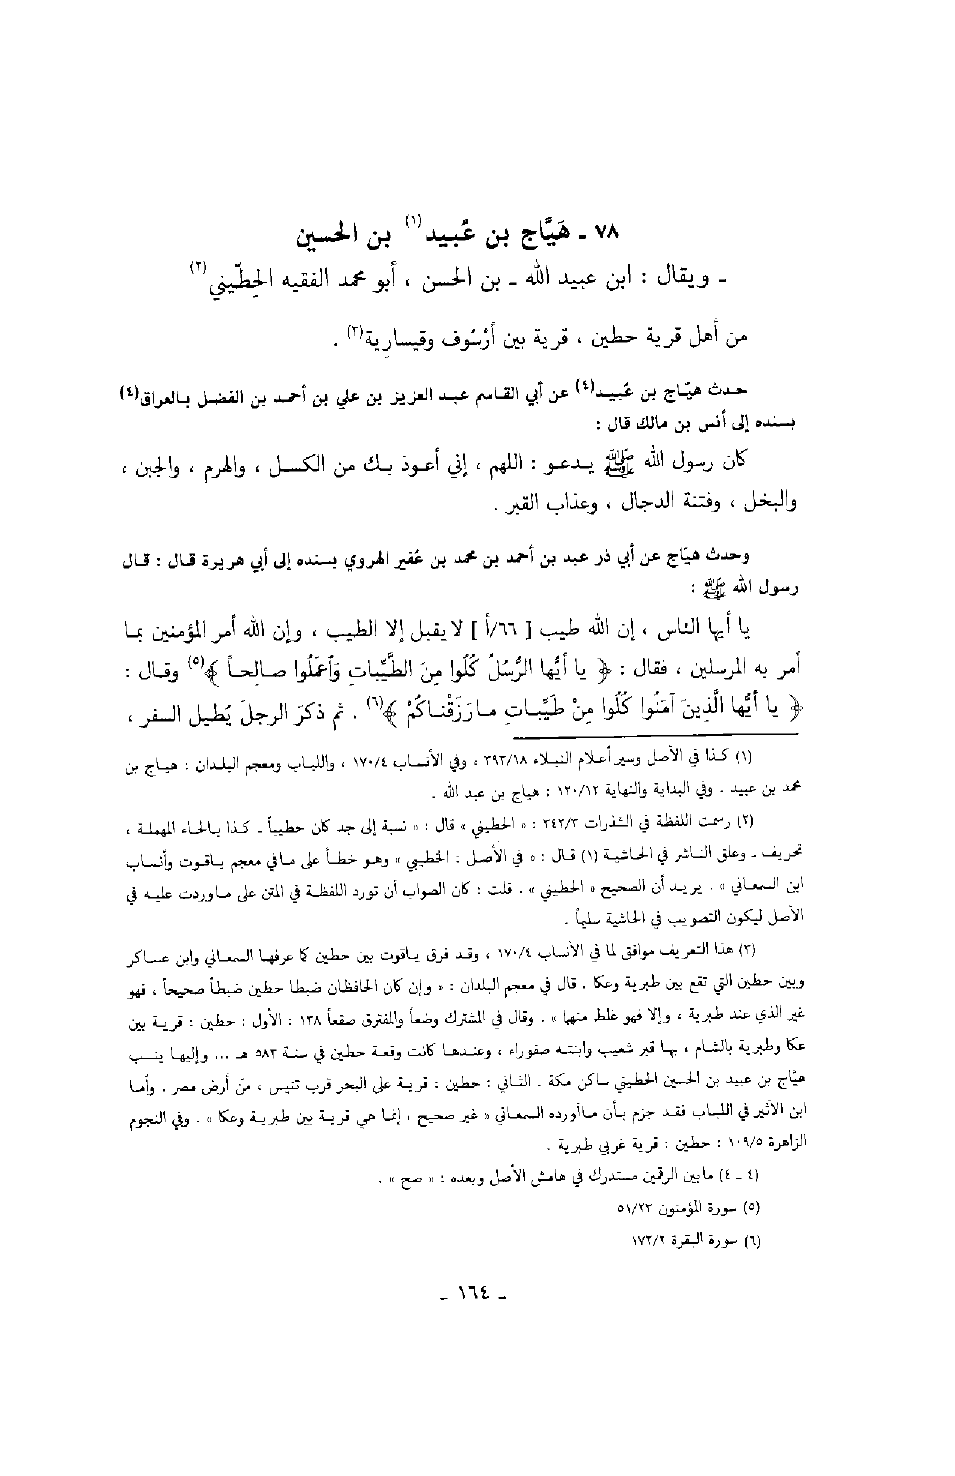 ٧٨ ـ هَيَّاج بن عُبيد(١) بن الحسين
ـ ويقال : ابن عبيد الله ـ بن الحسن ، أبو محمد الفقيه الحِطّيني(٢)
من أهل قرية حطين ، قرية بين أرْسُوف وقيسارية(٣) .
حدث هيّاج بن عُبيد(٤) عن أبي القاسم عبد العزيز بن علي بن أحمد بن الفضل بالعراق(٤)
بسنده إلى أنس بن مالك قال :
كان رسول الله ﷺ يدعو : اللهم ، إني أعوذ بك من الكسل ، والهرم ، والجبن ،
والبخل ، وفتنة الدجال ، وعذاب القبر .
وحدث هيّاج عن أبي ذر عبد بن أحمد بن محمد بن عُفير الهروي بسنده إلى أبي هريرة قال : قال
رسول الله ﷺ :
يا أيها الناس ، إن الله طيب [ ٦٦/أ ] لا يقبل إلا الطيب ، وإن الله أمر المؤمنين بما
أمر به المرسلين ، فقال : ﴿ يا أيُّها الرُّسُلُ كُلُوا مِنَ الطَّيِّباتِ وَاعْمَلُوا صالِحاً ﴾(٥) وقال :
﴿ يا أيُّها الَّذِينَ آمَنُوا كُلُوا مِنْ طَيِّباتِ مارَزَقْناكُمْ ﴾(٦) . ثم ذكرَ الرجلَ يُطيل السفر ،
(١) كذا في الأصل وسير أعلام النبلاء ٣٩٣/١٨ ، وفي الأنساب ١٧٠/٤ ، واللباب ومعجم البلدان : هياج بن
محمد بن عبيد . وفي البداية والنهاية ١٢٠/١٢ : هياج بن عبد الله .
(٢) رسمت اللفظة في الشذرات ٣٤٢/٣ : « الحطيني » قال : « نسبة إلى جد كان حطيباً ـ كذا بالحاء المهملة ،
تحريف ـ وعلق الناشر في الحاشية (١) قال : « في الأصل : الخطيبي » وهو خطأ على مافي معجم ياقوت وأنساب
ابن السمعاني » . يريد أن الصحيح « الحطيني » . قلت : كان الصواب أن تورد اللفظة في المتن على ماوردت عليه في
الأصل ليكون التصويب في الحاشية سليماً .
(٣) هذا التعريف موافق لما في الأنساب ١٧٠/٤ ، وقد فرق ياقوت بين حطين كما عرفها السمعاني وابن عساكر
وبين حطين التي تقع بين طبرية وعكا . قال في معجم البلدان : « وإن كان الحافظان ضبطا حطين ضبطاً صحيحاً ، فهو
غير الذي عند طبرية ، وإلا فهو غلط منهما » . وقال في المشترك وضعاً والمفترق صقعاً ١٣٨ : الأول : حطين : قرية بين
عكا وطبرية بالشام ، بها قبر شعيب وابنته صفوراء ، وعندها كانت وقعة حطين في سنة ٥٨٣ هـ ... وإليها ينسب
هيّاج بن عبيد بن الحسين الحطيني ساكن مكة . الثاني : حطين : قرية على البحر قرب تنيس ، من أرض مصر . وأما
ابن الأثير في اللباب فقد جزم بأن ماأورده السمعاني « غير صحيح ، إنما هي قرية بين طبرية وعكا » . وفي النجوم
الزاهرة ١٠٩/٥ : حطين : قرية غربي طبرية .
(٤ ـ ٤) مابين الرقمين مستدرك في هامش الأصل وبعده : « صح » .
(٥) سورة المؤمنون ٥١/٢٣
(٦) سورة البقرة ١٧٢/٢
ـ ١٦٤ ـ